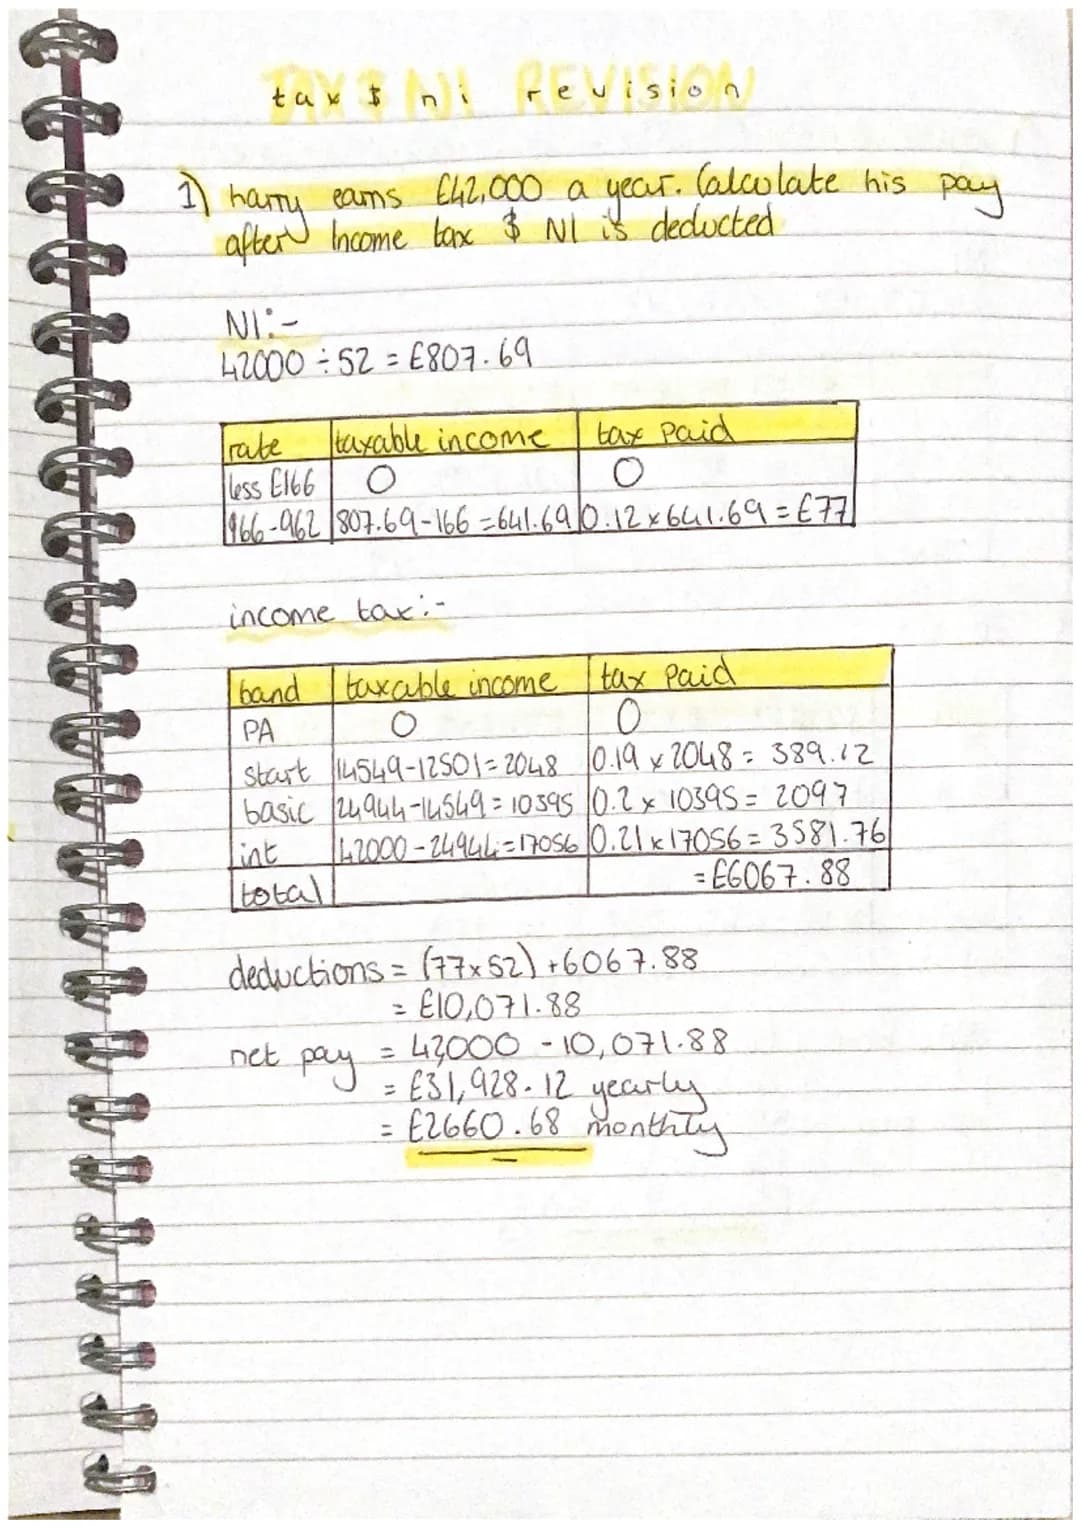 TAX $ NI REVISION
tax $ ni revision
1) harry earns £42,000 a year. Calculate his pay
after Income tax $ NI is deducted
NI:-
42000 ÷ 52 = £807.69
rate taxable income tax paid
less £166 0 0
166-962 807.69-166 = 641.69 0.12 x 641.69 = £77
income tax:-
band taxable income tax paid
PA 0 0
start 14549-12501 = 2048 0.19 x 2048 = 389.12
basic 24944-14549 = 10395 0.2 x 10395 = 2097
int 42000 - 24944 = 17056 0.21 x 17056 = 3581.76
total = £6067.88
deductions = (77x52) + 6067.88
= £10,071.88
net pay = 42,000 - 10,071.88
= £31,928.12 yearly
= £2660.68 monthly